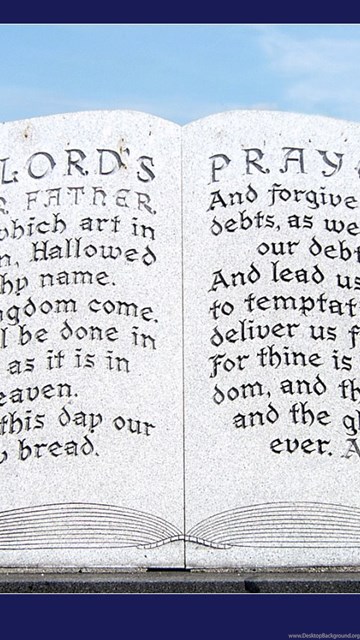 LORD'S
R FATHER
which art in
n, Hallowed
hy name.
ngdom come.
l be done in
as it is in
eaven.
this day our
y bread.
PRAY
And forgive
debts, as we
our debt
And lead us
to temptat
deliver us f
For thine is
dom, and th
and the gl
ever. A
www.DesktopBackground.org